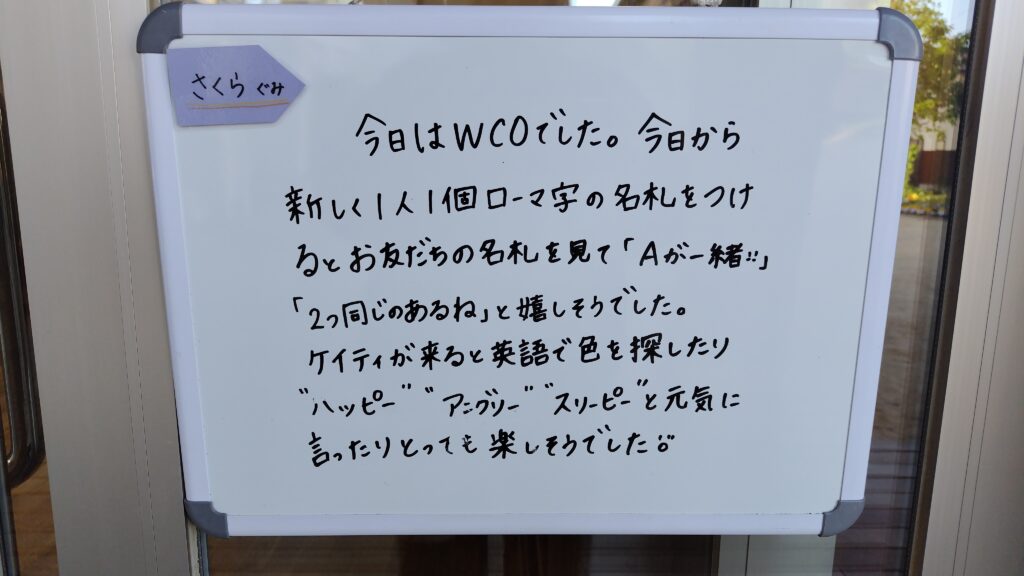 さくら ぐみ
今日はWCOでした。今日から
新しく1人1個ローマ字の名札をつけ
るとお友だちの名札を見て「Aが一緒!!」
「2つ同じのあるね」と嬉しそうでした。
ケイティが来ると英語で色を探したり
"ハッピー" "アングリー" "スリーピー"と元気に
言ったりとっても楽しそうでした!!